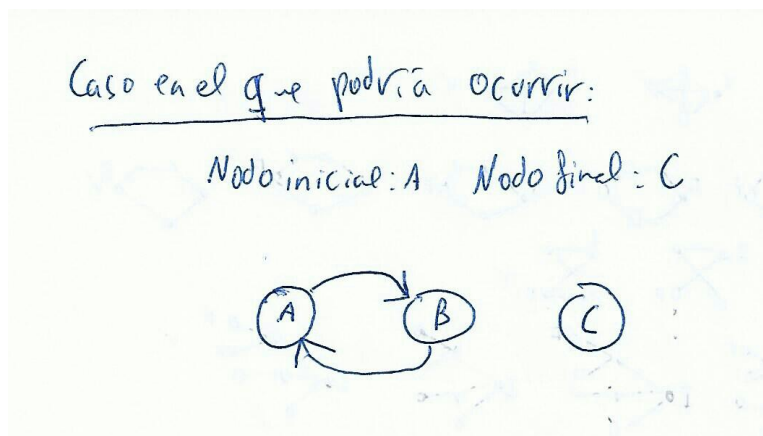 Caso en el que podría ocurrir:
Nodo inicial: A Nodo final: C
A B C